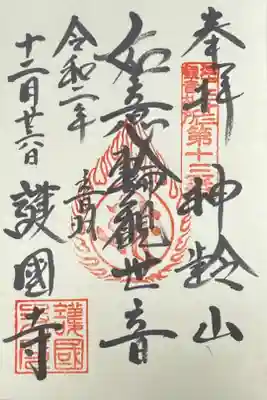 奉拝 神齢山
第十三番
如意輪觀世音
音羽
護國寺
令和二年
十二月廿六日
護國